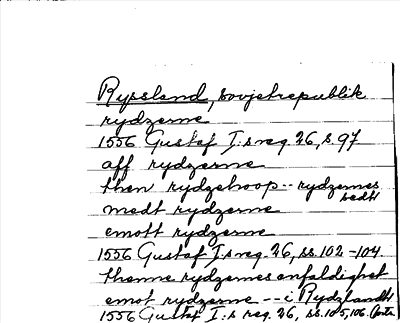 Ryssland, Sovjetrepublik
rydzerne
1556 Gustaf I:s reg. 26, s. 97
aff rydzerne
then rydzehoop -- rydzernes
sedh
medt rydzerne
emott rydzerne
1556 Gustaf I:s reg. 26, ss. 102-104.
thenne rydzernes enfaldighet
emot rydzerne -- i Rydzlandh
1556 Gustaf I:s reg. 26, ss. 105, 106.